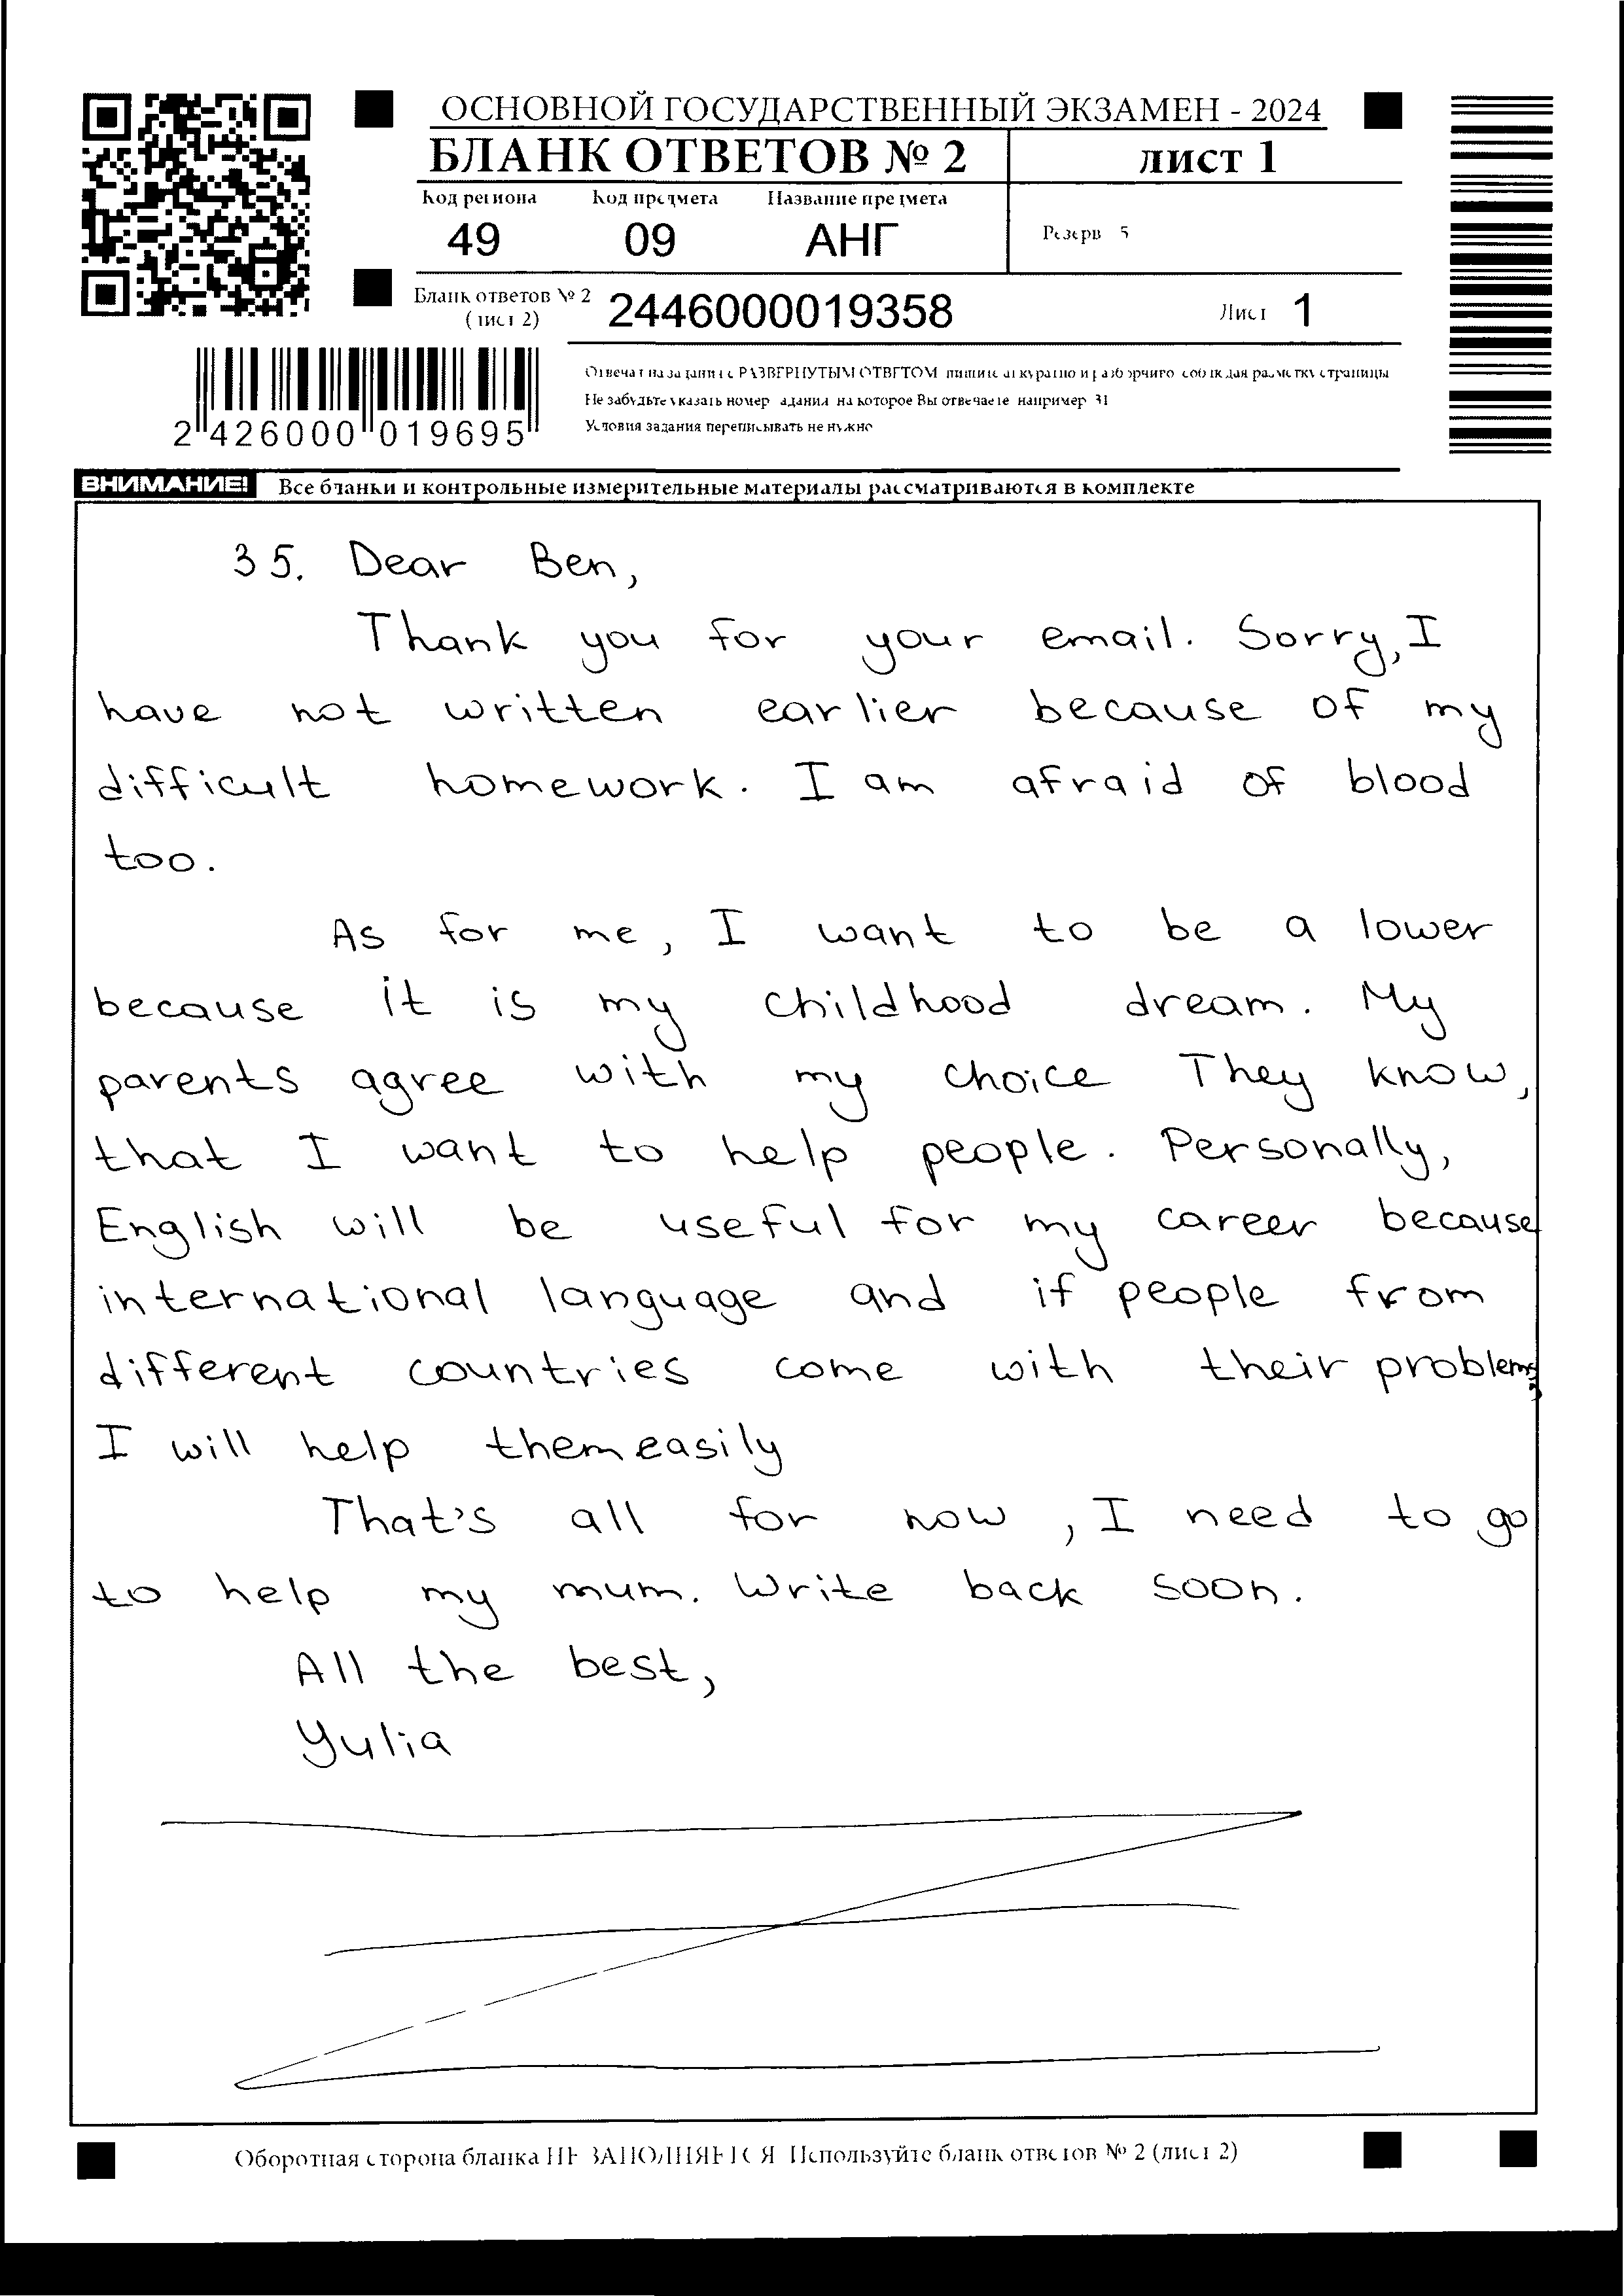 ОСНОВНОЙ ГОСУДАРСТВЕННЫЙ ЭКЗАМЕН - 2024
БЛАНК ОТВЕТОВ № 2
лист 1
Код региона Код предмета Название предмета
49 09 АНГ
Резерв 5
Бланк ответов № 2
(лист 2)
2446000019358
Лист 1
2 426000 019695
Отвечая на задания с РАЗВЕРНУТЫМ ОТВЕТОМ пишите аккуратно и разборчиво соблюдая разметку страницы
Не забудьте указать номер задания на которое Вы отвечаете например 31
Условия задания переписывать не нужно
ВНИМАНИЕ! Все бланки и контрольные измерительные материалы рассматриваются в комплекте
35. Dear Ben,
Thank you for your email. Sorry, I
have not written earlier because of my
difficult homework. I am afraid of blood
too.
As for me, I want to be a lower
because it is my childhood dream. My
parents agree with my choice They know,
that I want to help people. Personally,
English will be useful for my career because
international language and if people from
different countries come with their problems,
I will help them easily
That's all for now, I need to go
to help my mum. Write back soon.
All the best,
Yulia
Оборотная сторона бланка НЕ ЗАПОЛНЯЕТСЯ Используйте бланк ответов № 2 (лист 2)